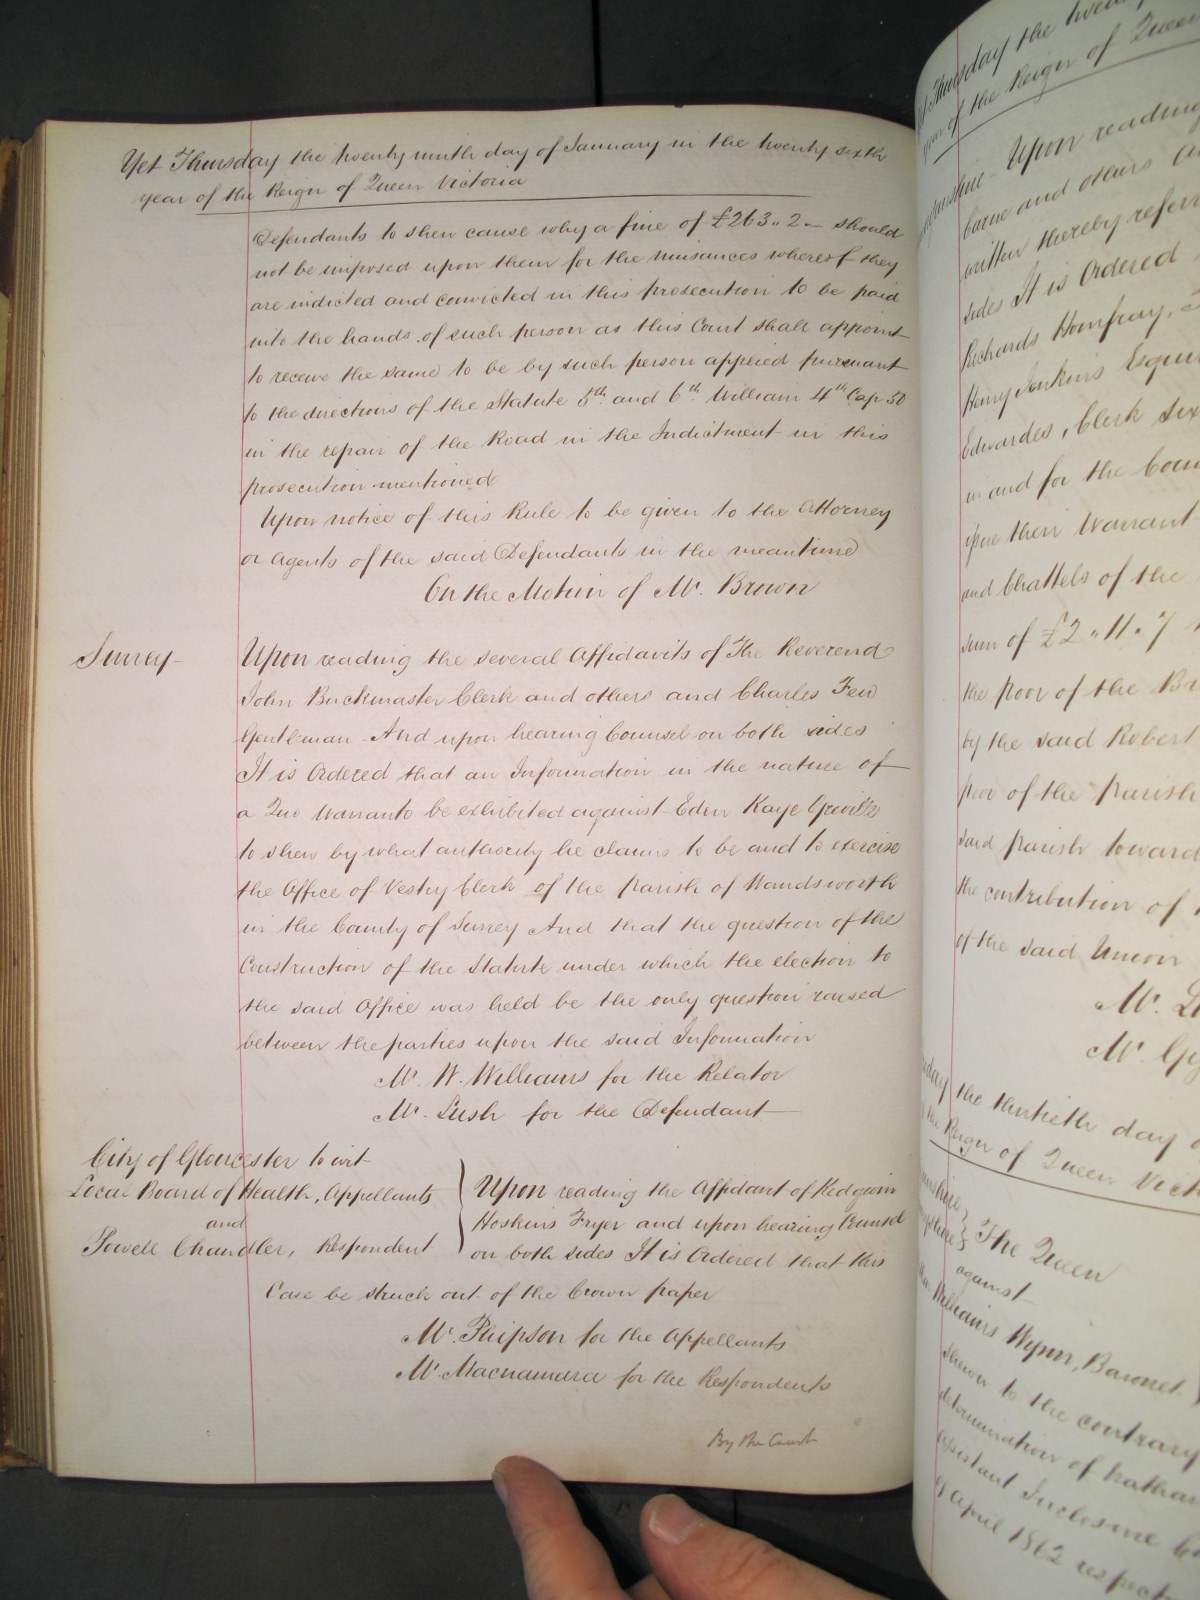 Yet Thursday the twenty ninth day of January in the twenty sixth
year of the Reign of Queen Victoria
Defendants to shew cause why a fine of £263 „ 2 – should
not be imposed upon them for the nuisances whereof they
are indicted and convicted in this prosecution to be paid
into the hands of such person as this Court shall appoint
to receive the same to be by such person applied pursuant
to the directions of the Statute 5th and 6th William 4th Cap 50
in the repair of the Road in the Indictment in this
prosecution mentioned
Upon notice of this Rule to be given to the Attorney
or agents of the said Defendants in the meantime
On the Motion of Mr. Brown
Surrey
Upon reading the several Affidavits of The Reverend
John Buckmaster Clerk and others and Charles Few
Gentleman And upon hearing Counsel on both sides
It is Ordered that an Information in the nature of
a Quo Warranto be exhibited against Eden Kaye Greville
to shew by what authority he claims to be and to exercise
the Office of Vestry Clerk of the Parish of Wandsworth
in the County of Surrey And that the question of the
Construction of the Statute under which the election to
the said Office was held be the only question raised
between the parties upon the said Information
Mr. W. Williams for the Relator
Mr. Lush for the Defendant
City of Gloucester to wit
Local Board of Health, Appellants
and
Powell Chandler, Respondent
Upon reading the Affidavit of Kedgwin
Hoskins Fryer and upon hearing Counsel
on both sides It is Ordered that this
Case be struck out of the Crown paper
Mr. Phipson for the Appellants
Mr. Macnamara for the Respondents
By the Court
Yet Thursday the twenty
year of the Reign of Queen
Upon reading
and others
written thereby referr
sides It is Ordered
Richards Homfray,
Henry Jenkins Esqui
Edwardes, Clerk six
in and for the Coun
issue their Warrant
and Chattels of the
sum of £2 „ 11 „ 7
the poor of the
by the said Robert
poor of the parish
said parish toward
the contribution of
of the said Union
Mr.
Mr.
the thirtieth day
Reign of Queen Vict
The Queen
against
Williams Wynn, Baronet
shewn to the contrary
determination of
assistant Inclosure
of April 1862 respect